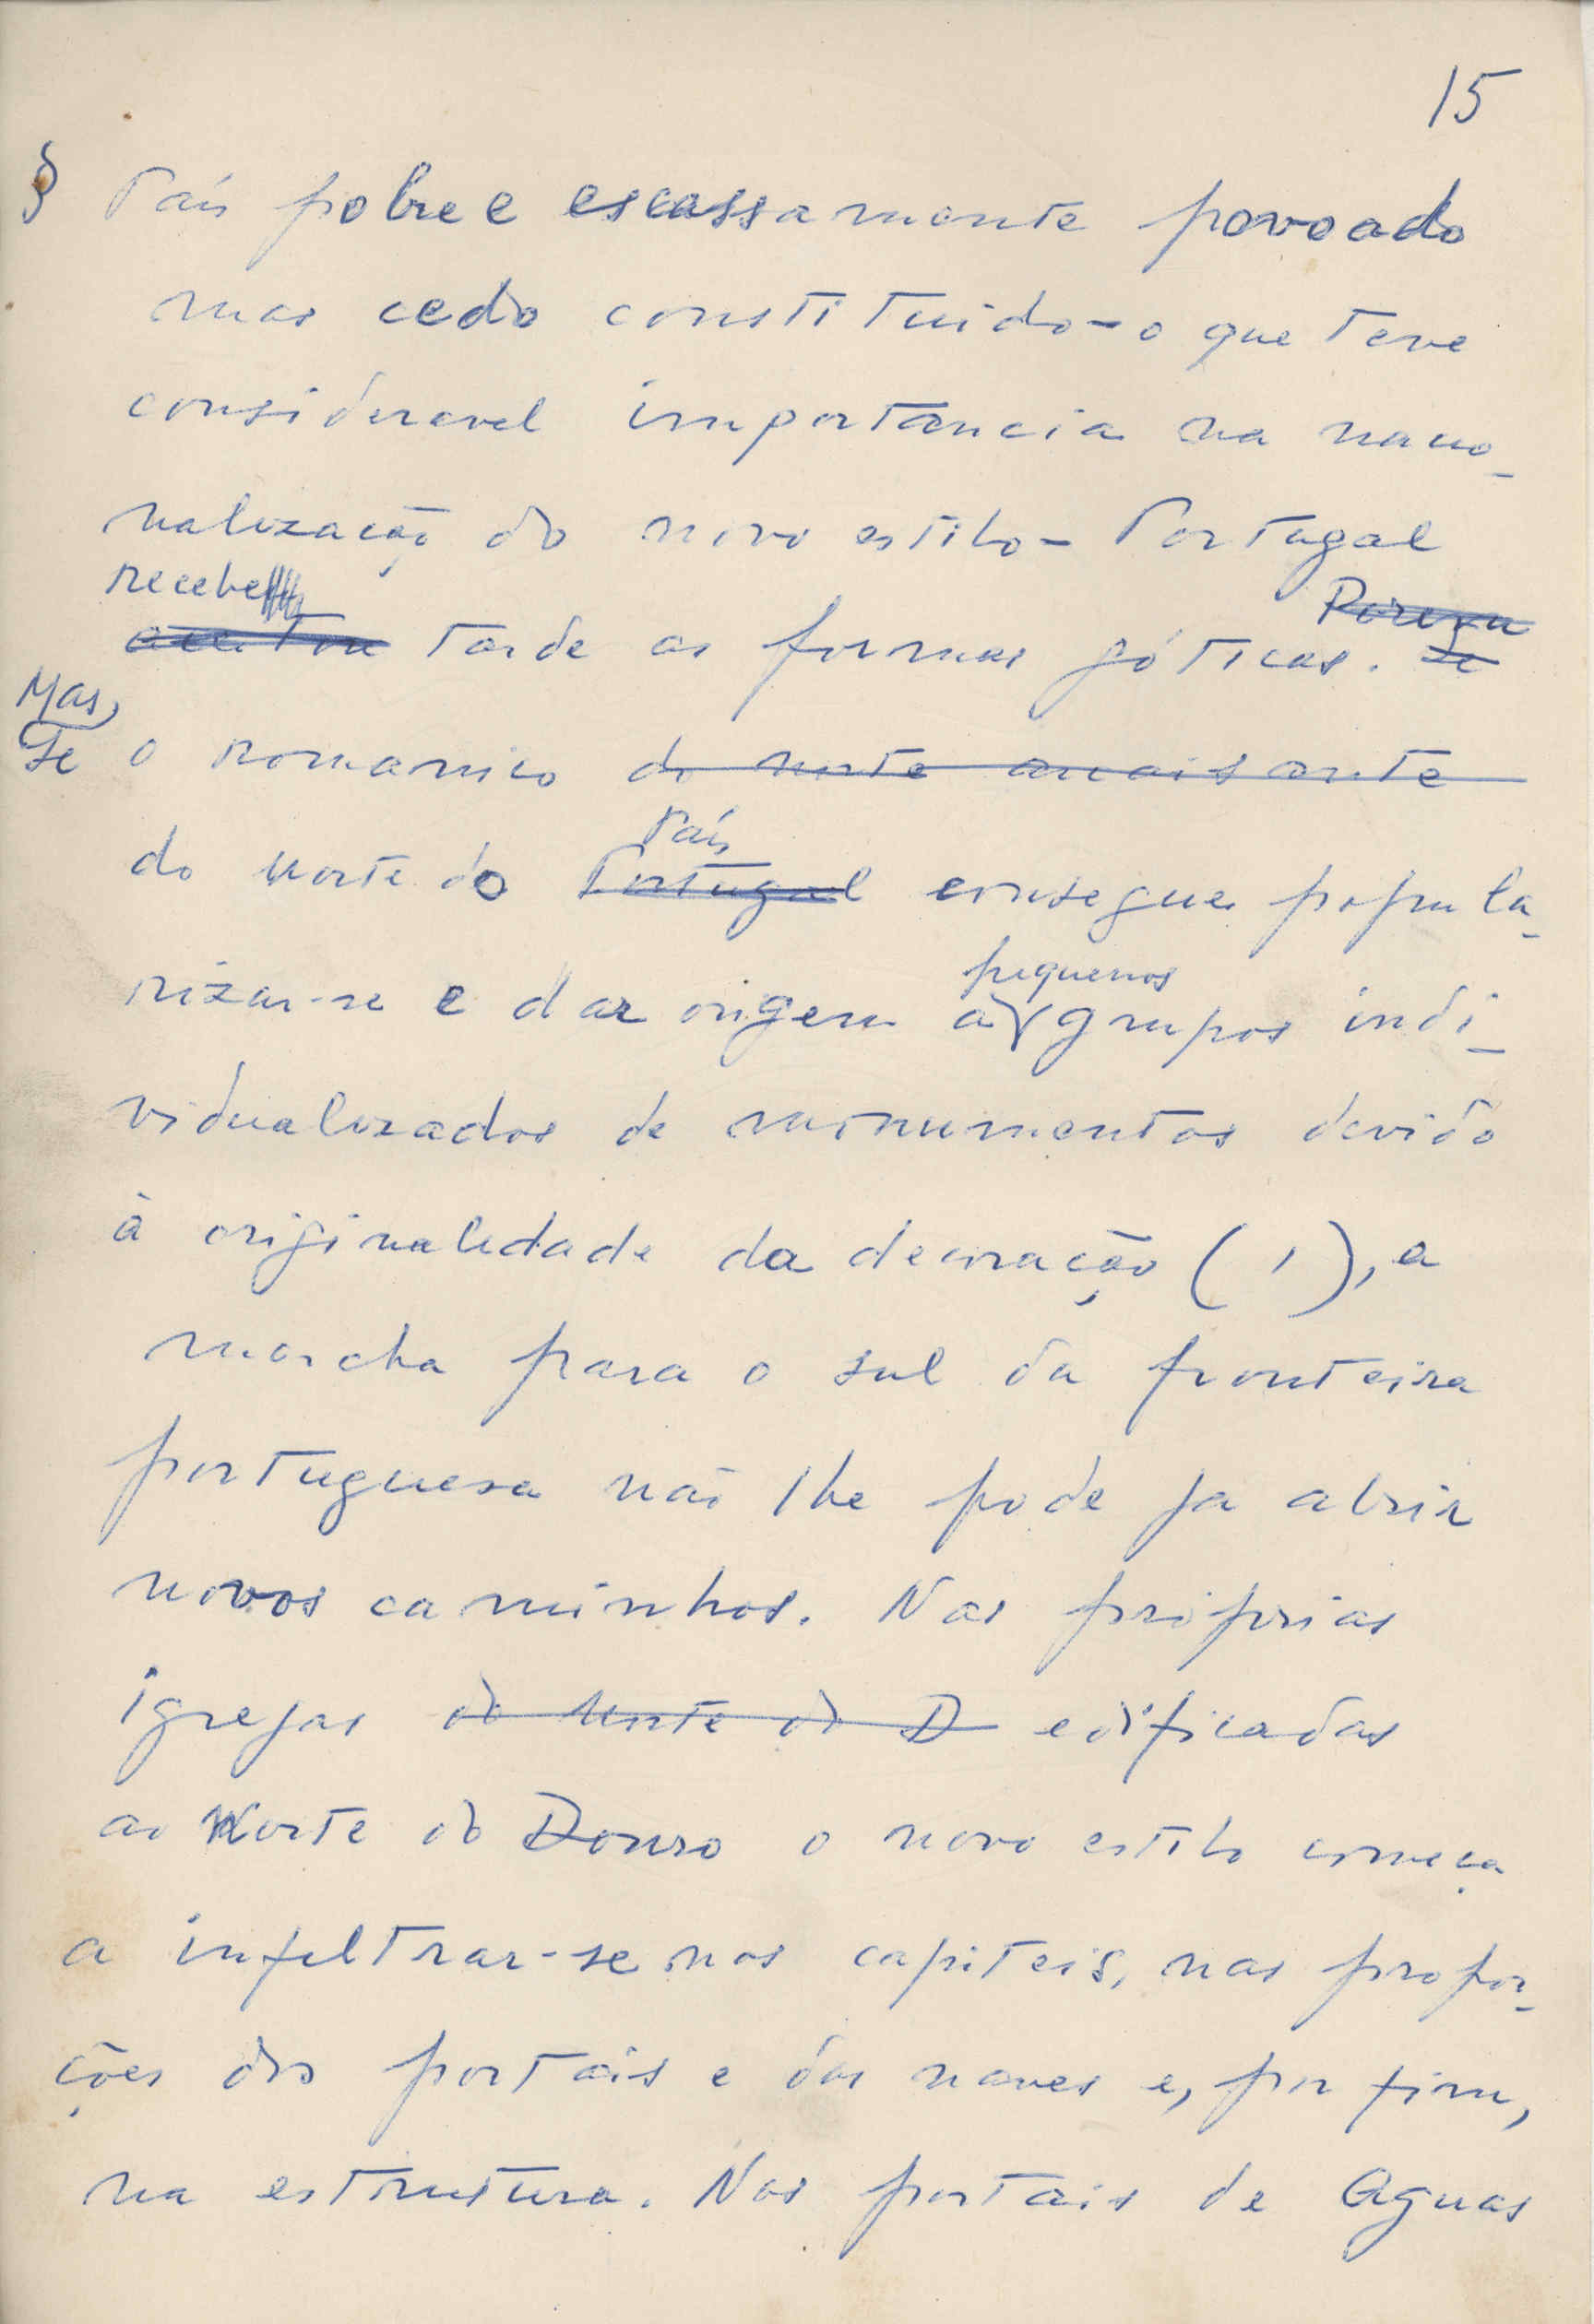 15
§ País pobre e escassamente povoado
mas cedo constituido - o que teve
consideravel importancia na nacio-
nalização do novo estilo - Portugal
recebe
aceitou tarde as formas góticas. Porem se
Mas,
se o romanico do norte arcaisante
País
do Norte do Portugal consegue popula-
pequenos
rizar-se e dar origem a grupos indi-
vidualizados de monumentos devido
à originalidade da decoração (1), a
marcha para o sul da fronteira
portuguesa não lhe pode ja abrir
novos caminhos. Nas próprias
igrejas do Norte do D edificadas
ao Norte do Douro o novo estilo começa
a infiltrar-se nos capiteis, nas propor-
ções dos portais e das naves e, por fim,
na estrutura. Nos portais de Aguas